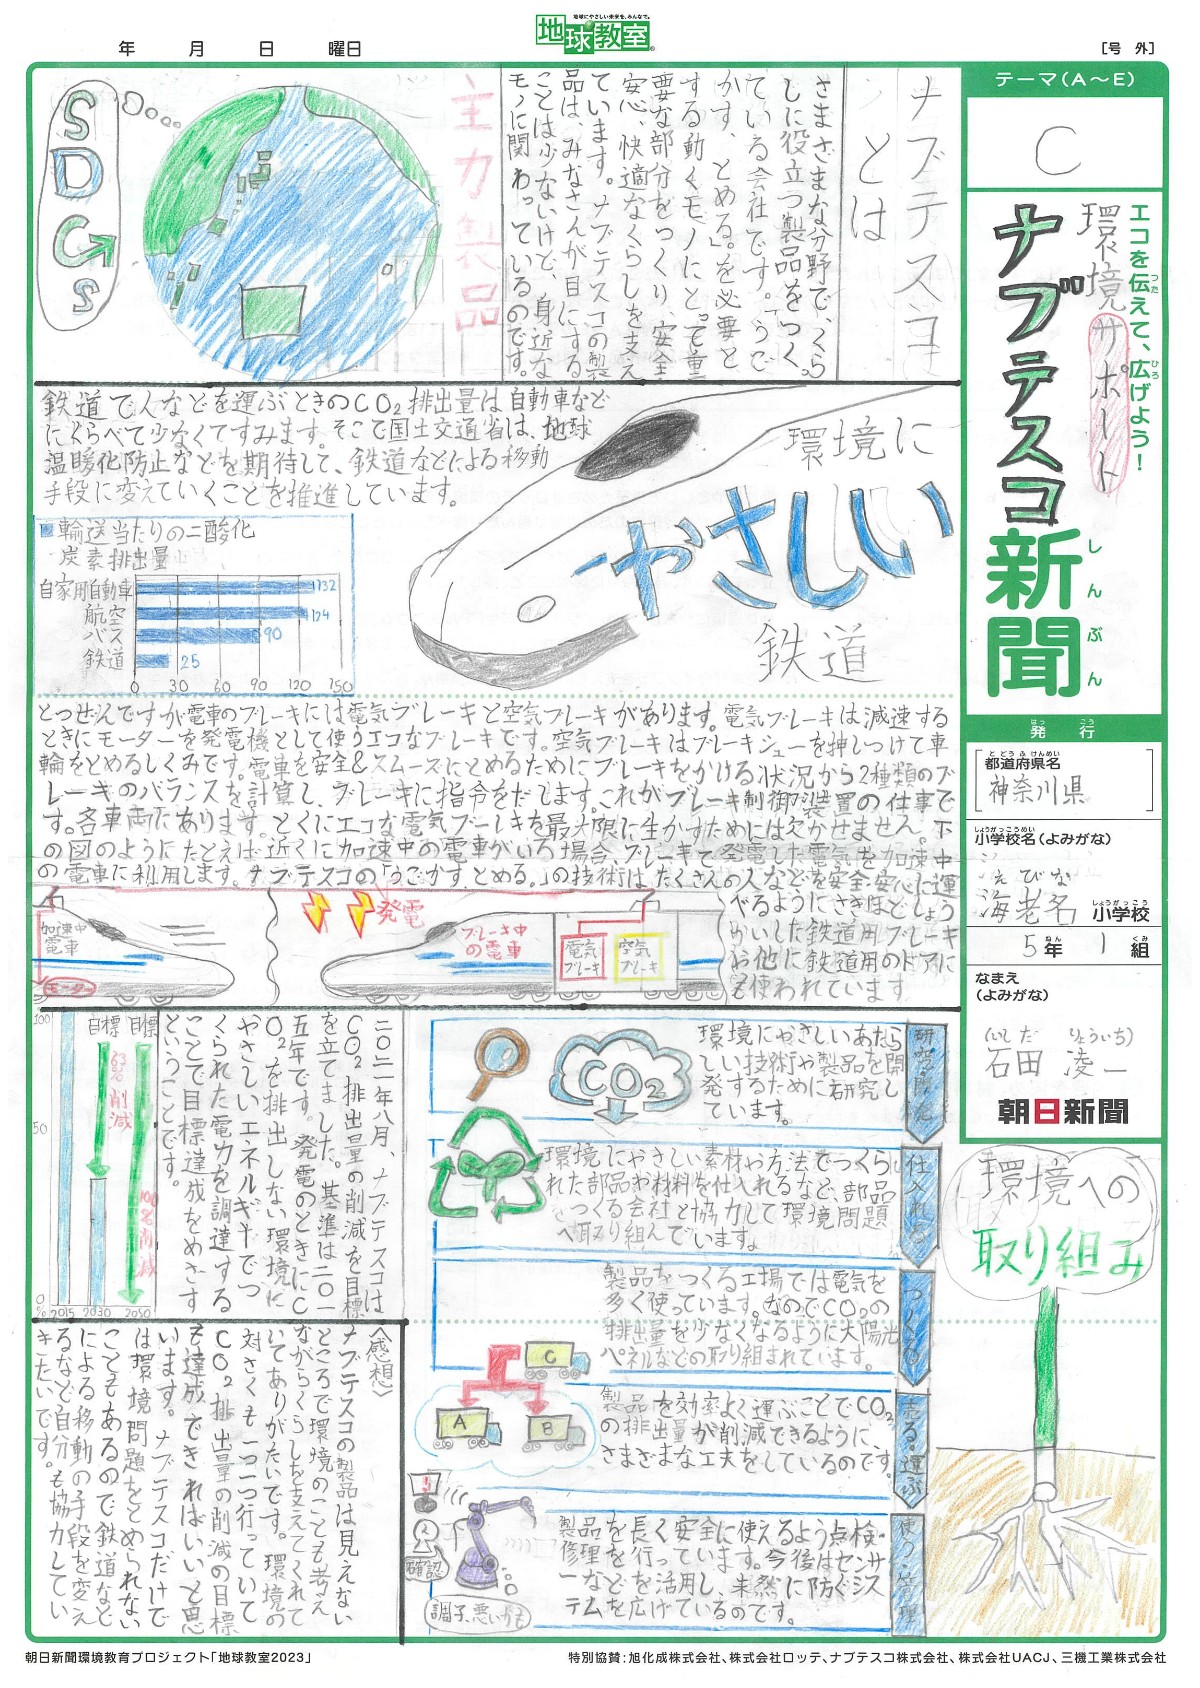 地球にやさしい未来を、みんなで。
地球教室
年 月 日 曜日
[号 外]
テーマ(A～E)
C
エコを伝えて、広げよう!
つた
ひろ
環境サポート
ナブテスコ
新聞
しんぶん
発行
はっこう
都道府県名
とどうふけんめい
神奈川県
小学校名(よみがな)
しょうがっこうめい
えびな
海老名 小学校
しょうがっこう
5年 1組
ねん くみ
なまえ
(よみがな)
(いしだ りょういち)
石田 凌一
朝日新聞
ナブテスコ
とは
さまざまな分野で、くら
しに役立つ製品をつく
っている会社です。「うご
かす、とめる。」を必要と
する動くモノにとって重
要な部分をつくり、安全
安心、快適なくらしを支え
ています。ナブテスコの製
品は、みなさんが目にする
ことは少ないけど、身近な
モノに関わっているのです。
主力製品
SDGs
鉄道で人などを運ぶときのCO2排出量は自動車など
にくらべて少なくてすみます。そこで国土交通省は、地球
温暖化防止などを期待して、鉄道などによる移動
手段に変えていくことを推進しています。
環境に
やさしい
鉄道
輸送当たりの二酸化
炭素排出量
自家用自動車 132
航空 124
バス 90
鉄道 25
0 30 60 90 120 150
とつぜんですが電車のブレーキには電気ブレーキと空気ブレーキがあります。電気ブレーキは減速する
ときにモーターを発電機として使うエコなブレーキです。空気ブレーキはブレーキシューを押しつけて車
輪をとめるしくみです。電車を安全&スムーズにとめるためにブレーキをかける状況から2種類のブ
レーキのバランスを計算し、ブレーキに指令をだします。これがブレーキ制御装置の仕事で
す。各車両にあります。とくにエコな電気ブレーキを最大限に生かすためには欠かせません。下
の図のようにたとえば近くに加速中の電車がいる場合、ブレーキで発電した電気を加速中
の電車に利用します。ナブテスコの「うごかすとめる。」の技術はたくさんの人などを安全安心に運
べるようにさきほどしょう
かいした鉄道用ブレーキ
の他に鉄道用のドアに
も使われています
加速中
電車
モーター
発電
ブレーキ中
の電車
電気
ブレーキ
空気
ブレーキ
100
50
0
%
目標 目標
63%削減
100%削減
2015 2030 2050
二〇二一年八月、ナブテスコは
CO2排出量の削減を目標
を立てました。基準は二〇一
五年です。発電のときにC
O2を排出しない環境に
やさしいエネルギーでつ
くられた電力を調達する
ことで目標達成をめざす
ということです。
環境への
取り組み
研究・開発
環境にやさしいあたら
しい技術や製品を開
発するために研究し
ています。
CO2
仕入れる
環境にやさしい素材や方法でつくら
れた部品や材料を仕入れるなど、部品
をつくる会社と協力して環境問題
へ取り組んでいます。
つくる
製品をつくる工場では電気を
多く使っています。なのでCO2の
排出量を少なくなるように太陽光
パネルなどの取り組まれています。
売る・運ぶ
製品を効率よく運ぶことでCO2
の排出量が削減できるように、
さまざまな工夫をしているのです。
C
A B
使う・管理
製品を長く安全に使えるよう点検・
修理を行っています。今後はセンサ
ーなどを活用し、未然に防ぐシス
テムを広げているのです。
確認
調子、悪いかも
〈感想〉
ナブテスコの製品は見えない
ところで環境のことも考え
ながらくらしを支えてくれて
いてありがたいです。環境の
対さくも一つ一つ行っていて
CO2排出量の削減の目標
も達成できればいいと思
います。ナブテスコだけで
は環境問題をとめられない
こともあるので鉄道など
による移動の手段を変え
るなど自分も協力してい
きたいです。
朝日新聞環境教育プロジェクト「地球教室2023」
特別協賛:旭化成株式会社、株式会社ロッテ、ナブテスコ株式会社、株式会社UACJ、三機工業株式会社